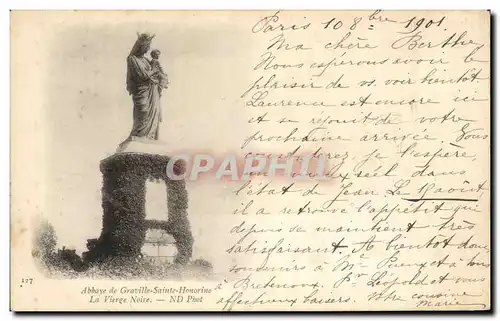 Paris 10 8bre 1901
Ma chère Berthe,
Nous espérons avoir le
plaisir de vs voir bientôt.
Laurence est encore ici
et se réjouit de votre
prochaine arrivée. Vous
je l'espère
un mieux réel dans
l'état de Jean Le 1 août
il a retrouvé l'appétit qui
depuis se maintient très
satisfaisant. A bientôt donc
souvenirs à Mr et à tous
à Léopold et vous
affectueux baisers. Votre cousine
Marie
CPAPHIL.COM
Abbaye de Graville-Sainte-Honorine
127
La Vierge Noire. — ND Phot